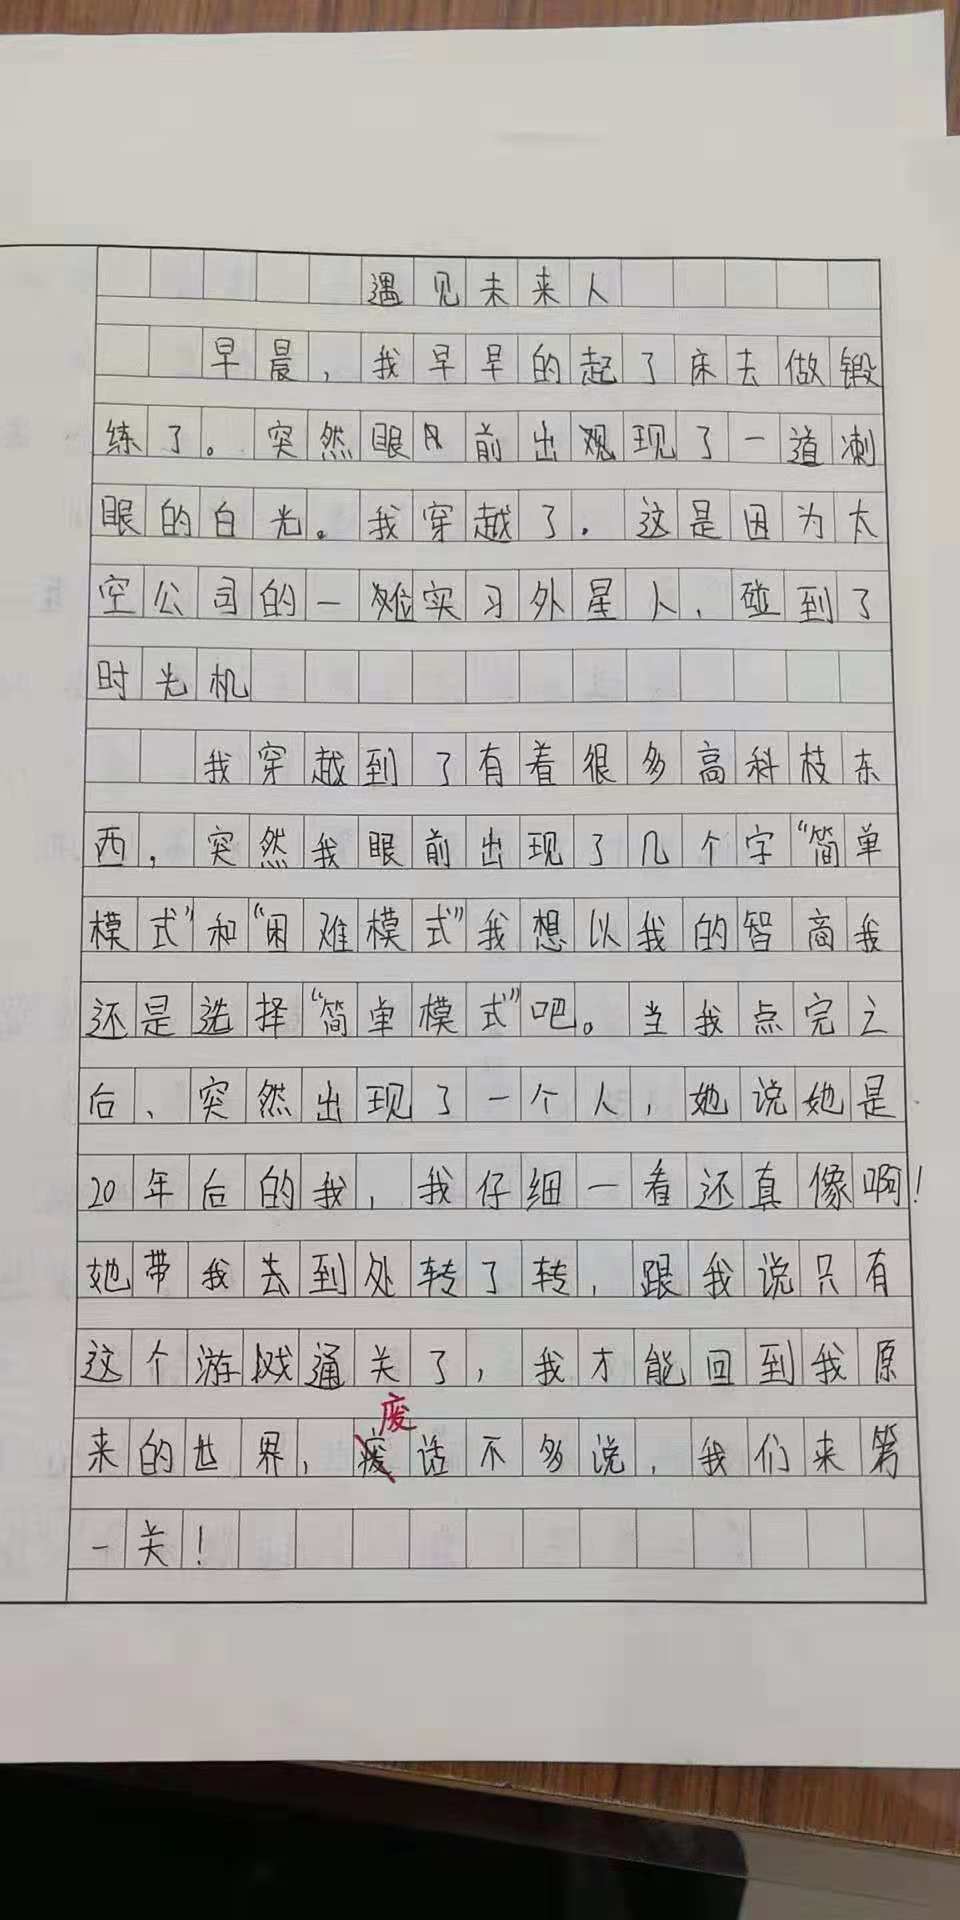 遇见未来人
早晨，我早早的起了床去做锻
练了。突然眼前出现了一道刺
眼的白光。我穿越了．这是因为太
空公司的一难实习外星人，碰到了
时光机
我穿越到了有着很多高科枝东
西，突然我眼前出现了几个字“简单
模式”和“困难模式”我想以我的智商我
还是选择“简单模式”吧。当我点完之
后、突然出现了一个人，她说她是
20年后的我，我仔细一看还真像啊！
她带我去到处转了转，跟我说只有
这个游戏通关了，我才能回到我原
废
来的世界，话不多说，我们来第
一关！